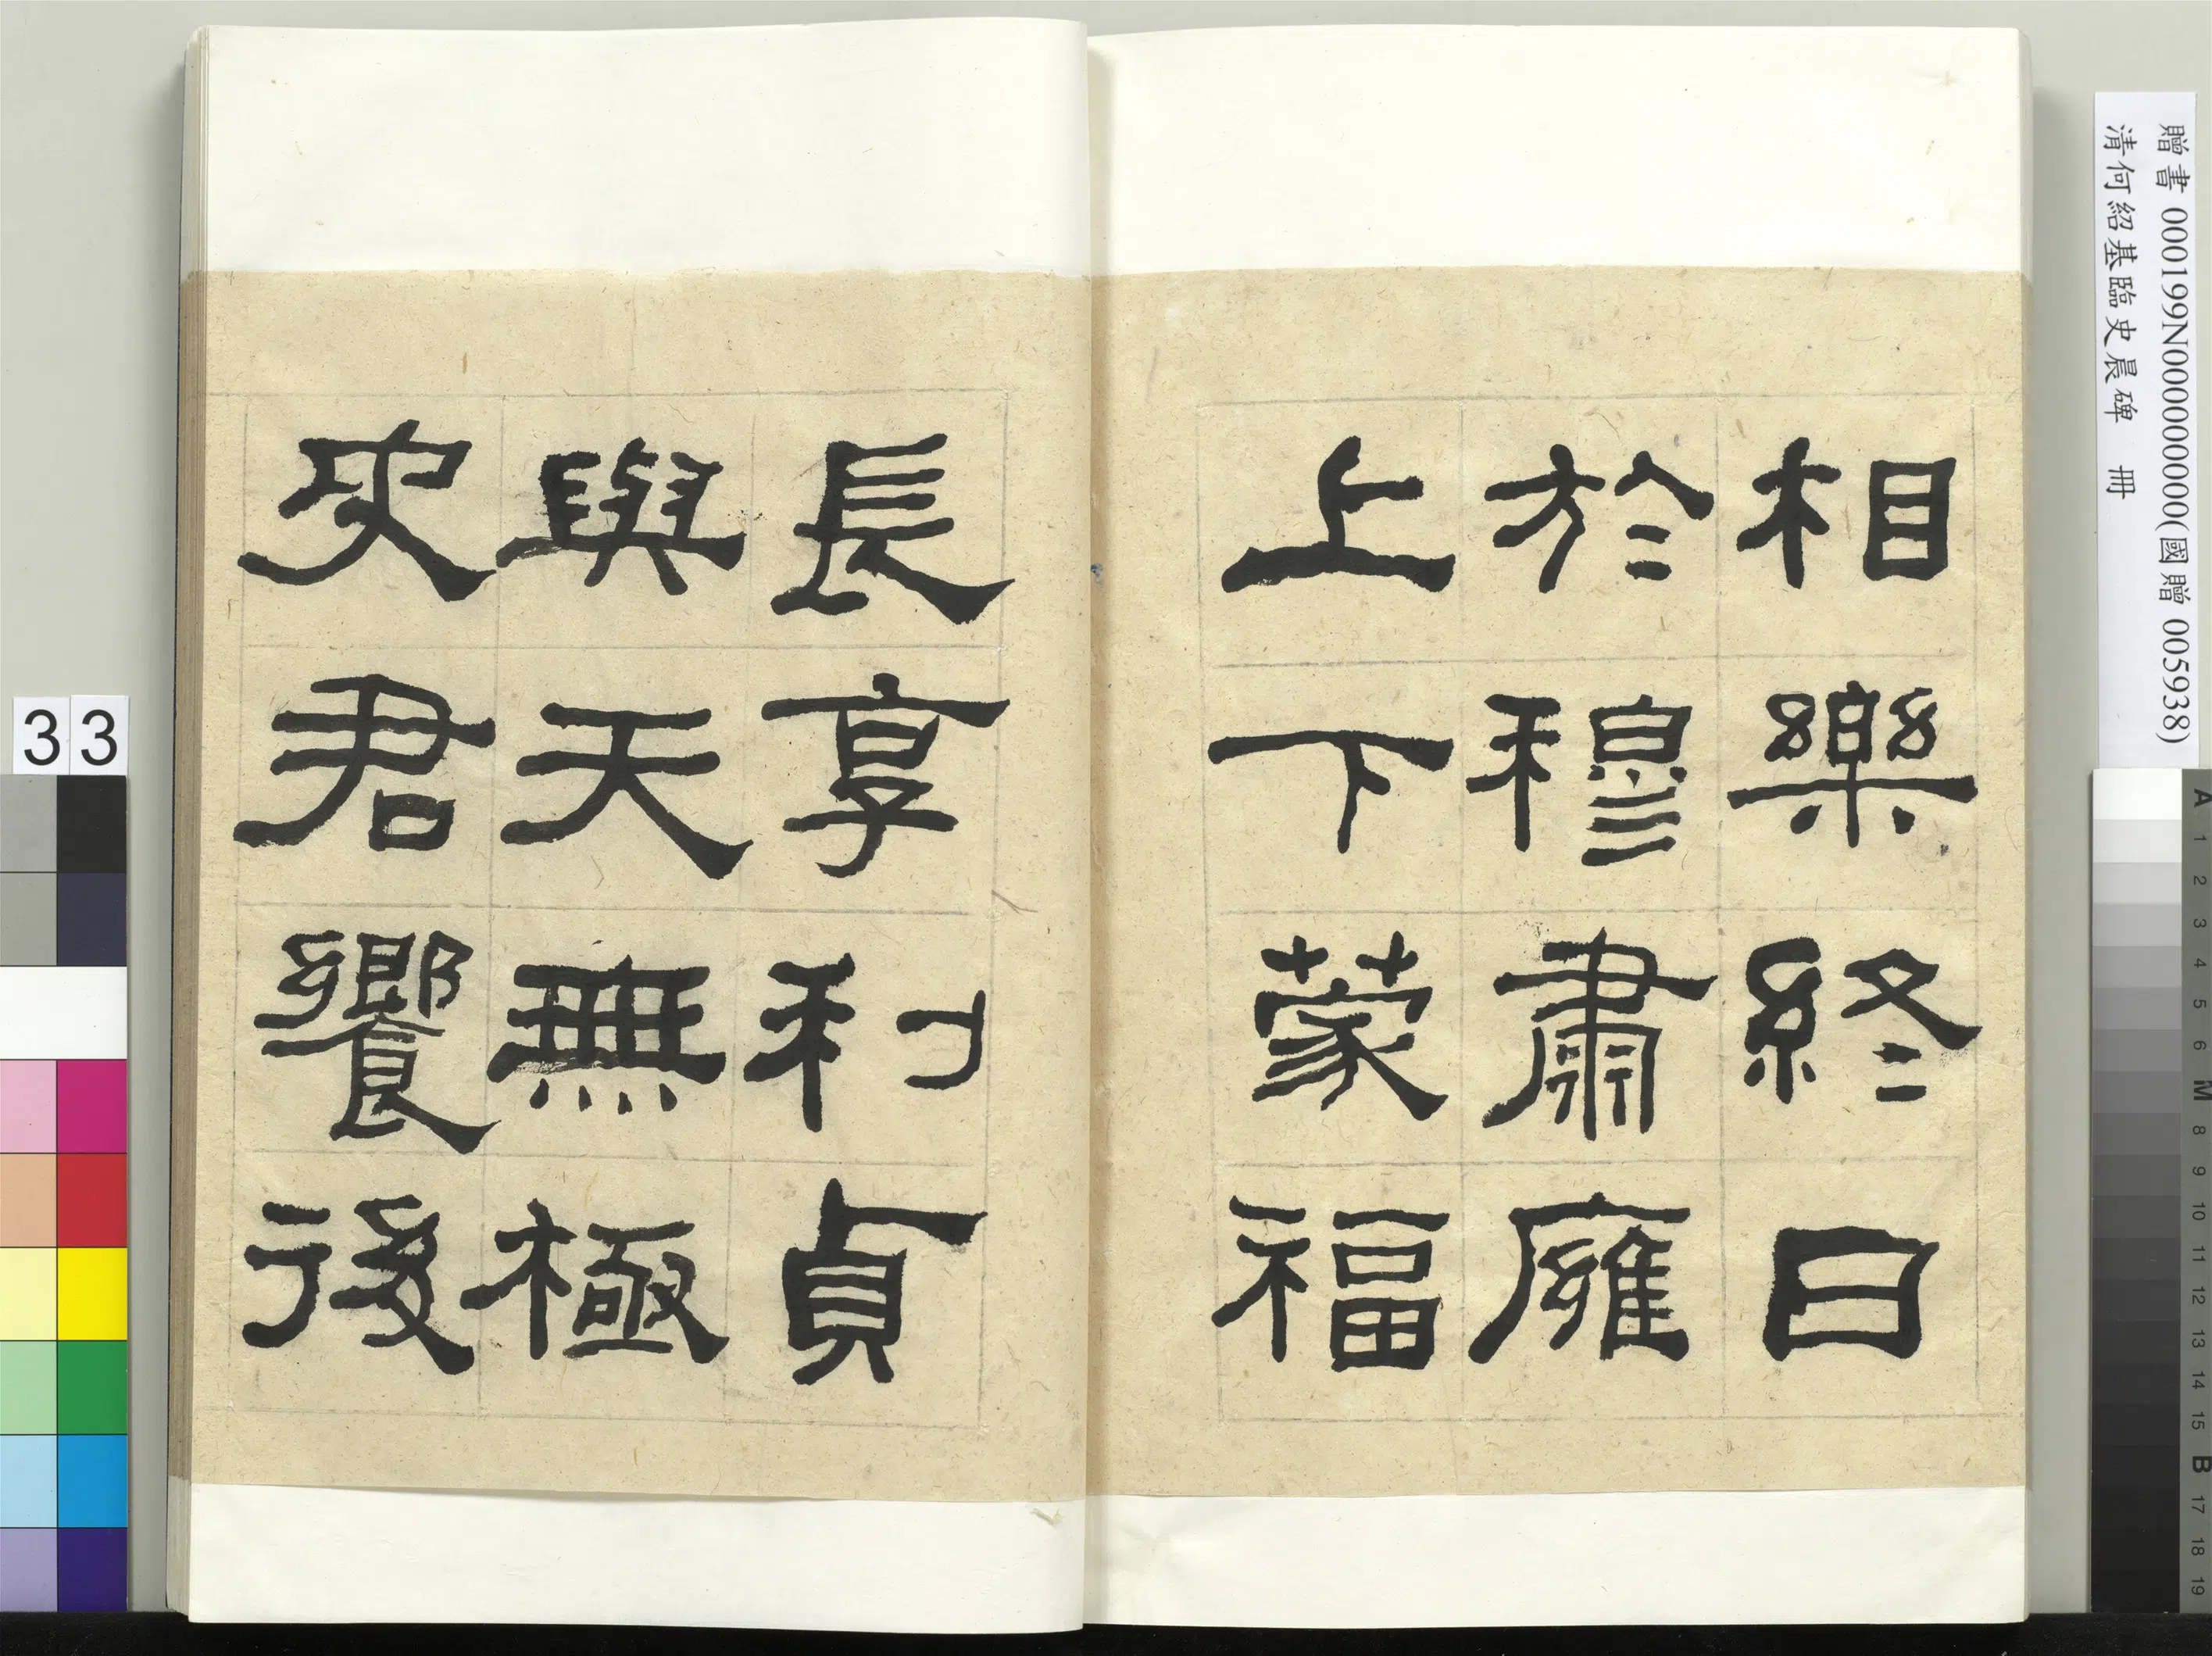 相樂終日
於穆肅廱
上下蒙福
長享利貞
與天無極
史君饗後
贈書 000199N000000000(國贈 005938)
清何紹基臨史晨碑 冊
33
A 1 2 3 4 5 6 M 8 9 10 11 12 13 14 15 B 17 18 19